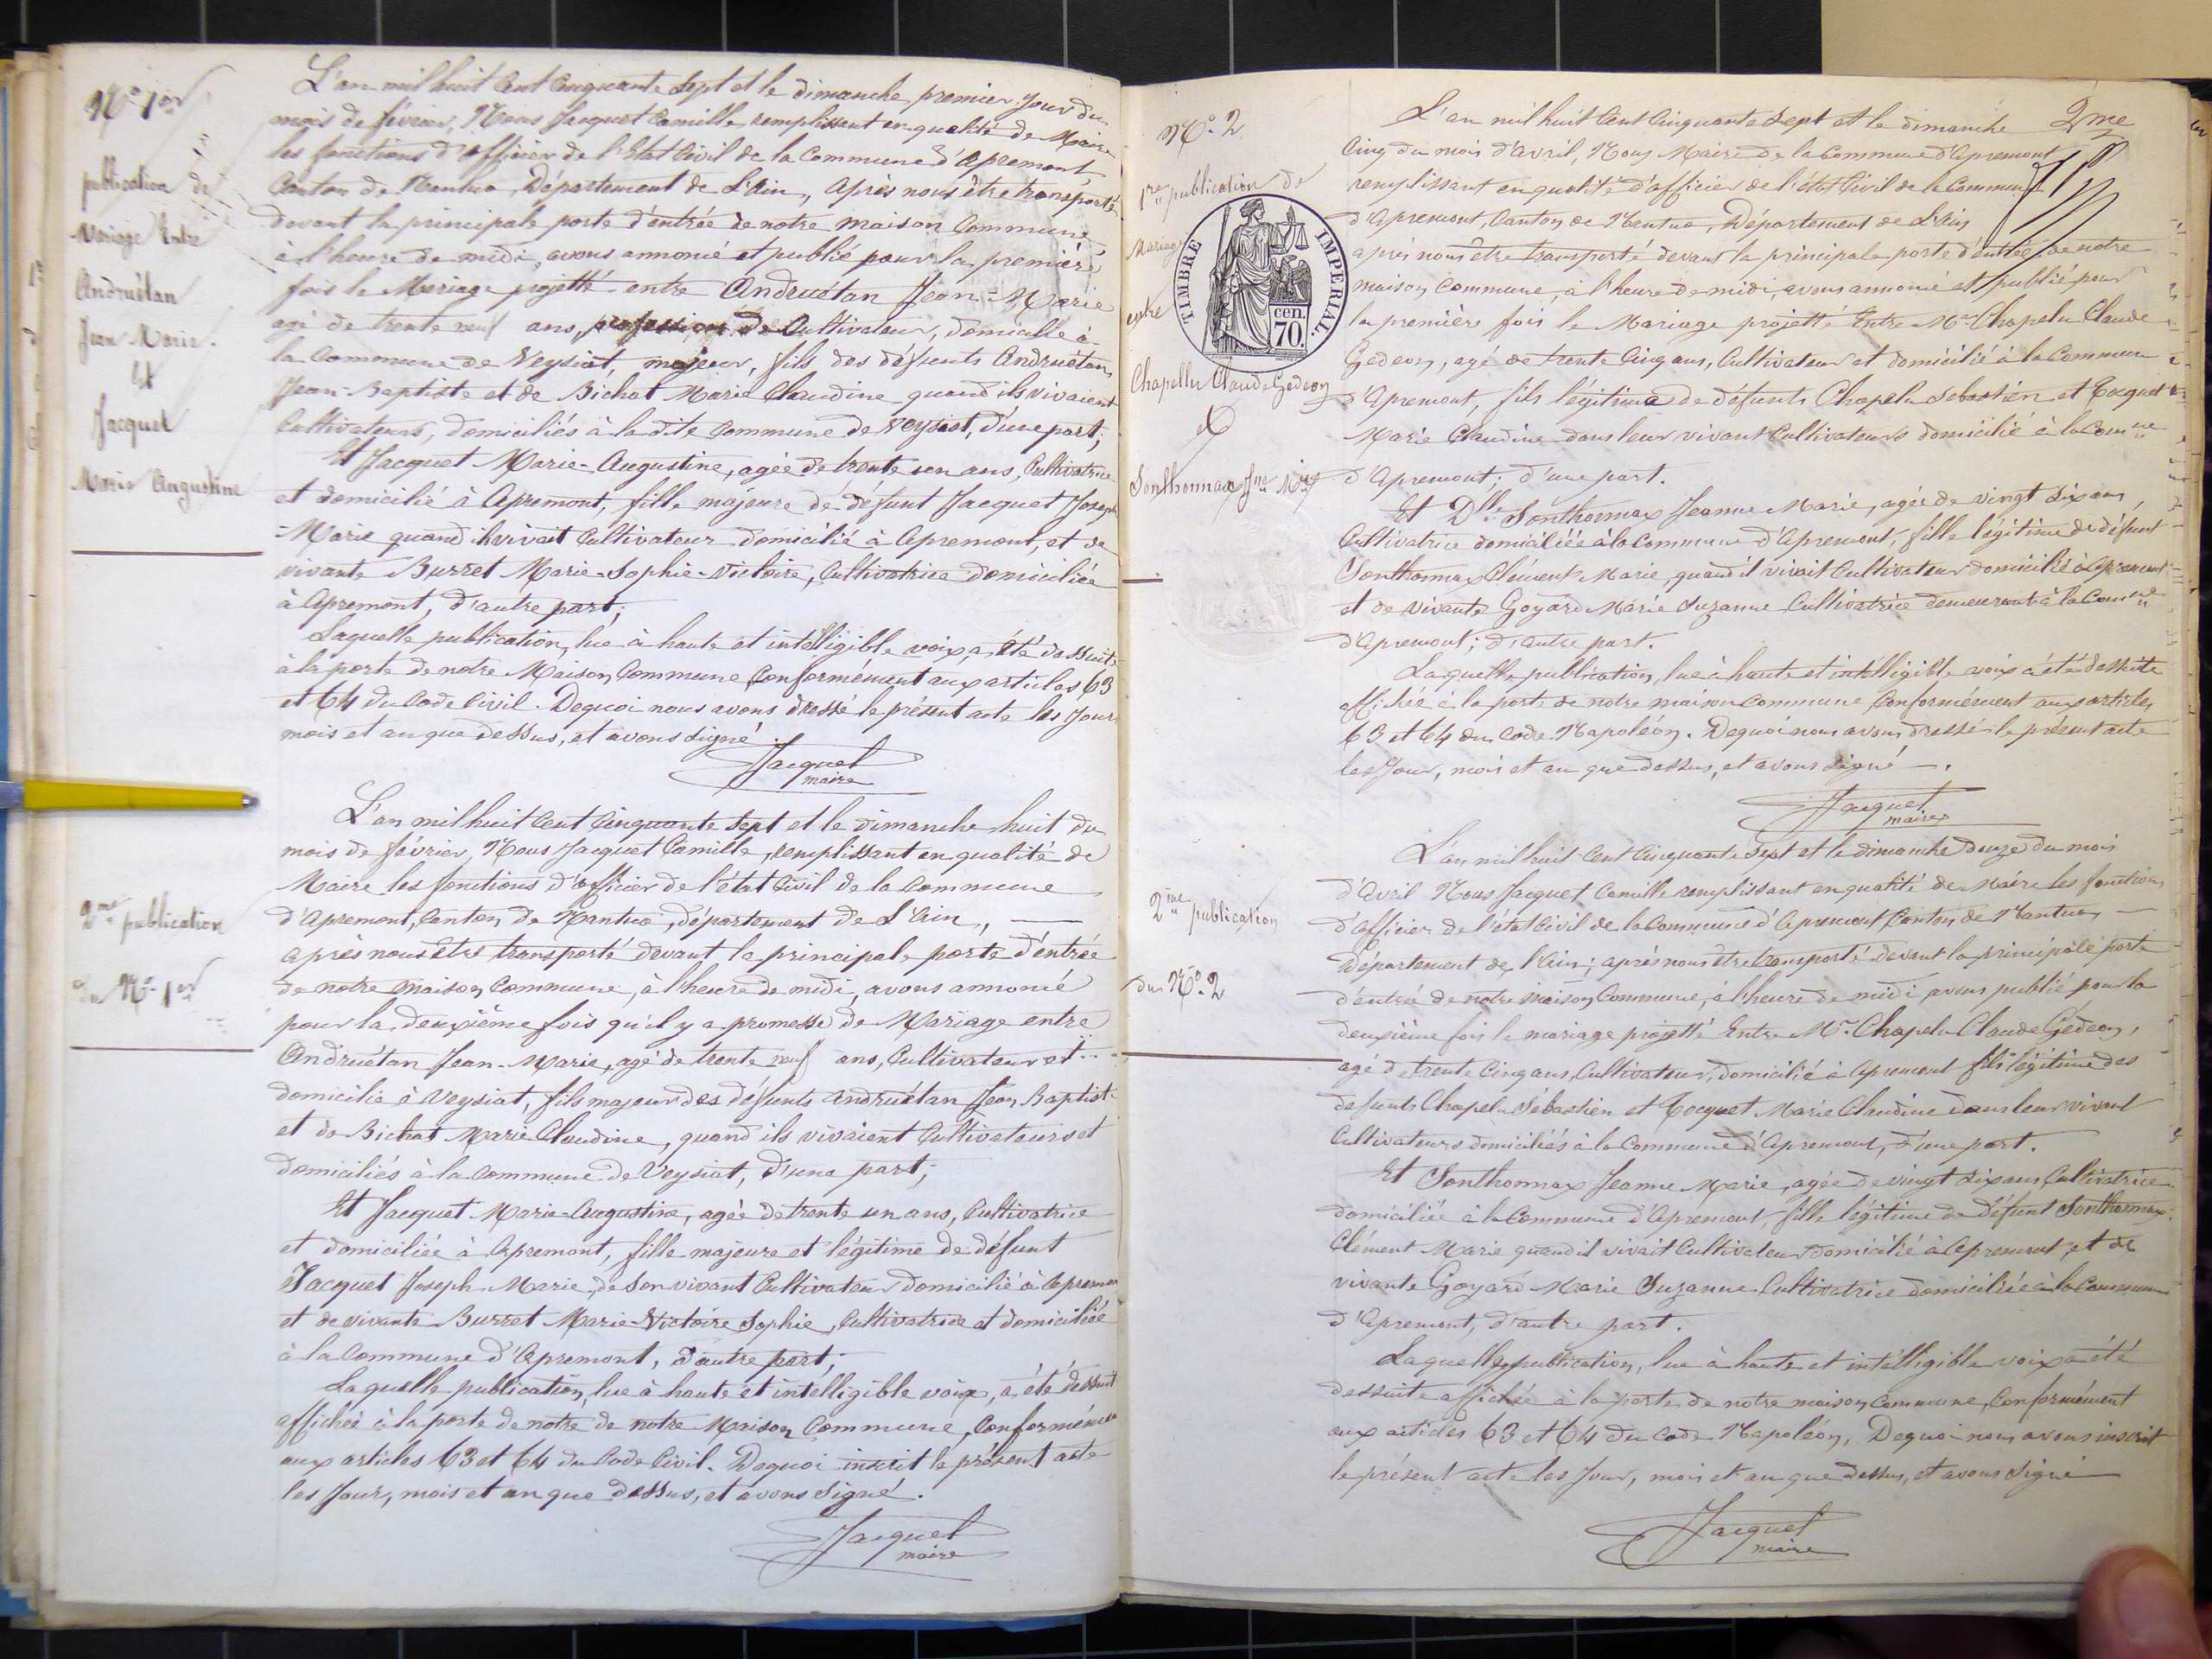 N.o 1er
publication de
Mariage Entre
Andruétan
Jean Marie.
Et
Jacquet
Marie Augustine
L'an mil huit Cent Cinquante Sept et le dimanche premier Jour du
mois de février, Nous Jacquet Camille remplissant en qualité de Maire
les fonctions d'officier de l'Etat Civil de la Commune d'Apremont
Canton de Nantua, Département de L'Ain, Après nous être transporté
devant la principale porte d'entrée de notre maison Commune
à l'heure de midi, avons annoncé et publié pour la première
fois le Mariage projetté entre Andruétan Jean-Marie
agé de trente neuf ans, profession de Cultivateur, domicilié à
la Commune de Veysiat, majeur, fils des défunts Andruétan
Jean-Baptiste et de Bichat Marie Claudine quand ils vivaient
Cultivateurs, domiciliés à la dite Commune de Veysiat, d'une part;
Et Jacquet Marie-Augustine, agée de trente un ans, Cultivatrice
et domicilié à Apremont, fille majeure de défunt Jacquet Joseph
-Marie quand il vivait Cultivateur domicilié à Apremont, et de
vivante Burret Marie-Sophie-Victoire, Cultivatrice domiciliée
à Apremont, d'autre part;
Laquelle publication, lue à haute et intelligible voix, a été dessuite
à la porte de notre Maison Commune Conformément aux articles 63
et 64 du Code Civil. Dequoi nous avons dressé le présent acte les Jour
mois et an que dessus, et avons signé.
Jacquet
maire
2me publication
du N.o 1er
L'an mil huit Cent Cinquante Sept et le dimanche huit du
mois de février, Nous Jacquet Camille, remplissant en qualité de
Maire les fonctions d'officier de l'état Civil de la Commune
d'Apremont, Canton de Nantua, département de L'Ain,
après nous être transporté devant la principale porte d'entrée
de notre maison Commune, à l'heure de midi, avons annoncé
pour la deuxième fois qu'il y a promesse de Mariage entre
Andruétan Jean-Marie, agé de trente neuf ans, Cultivateur et
domicilié à Veysiat, fils majeur des défunts Andruétan Jean Baptist
et de Bichat Marie Claudine, quand ils vivaient Cultivateurs et
domiciliés à la Commune de Veysiat, d'une part;
Et Jacquet Marie-Augustine, agée de trente un ans, Cultivatrice
et domiciliée à Apremont, fille majeure et légitime de défunt
Jacquet Joseph-Marie, de son vivant Cultivateur domicilié à Apremon
et de vivante Burret Marie-Victoire Sophie, Cultivatrice et domiciliée
à la Commune d'Apremont, d'autre part;
Laquelle publication, lue à haute et intelligible voix, a été dessuit
affichée à la porte de notre de notre Maison Commune, Conformémen
aux articles 63 et 64 du Code Civil. Dequoi inscrit le présent acte
les Jour, mois et an que dessus, et avons signé.
Jacquet
maire
2me
N.o 2
1re publication de
Mariage
entre
Chapellu Claude Gédéon
et
Sonthonnax Jne Mie
TIMBRE IMPERIAL.
cen.
70.
L'an mil huit Cent Cinquante Sept et le dimanche
Cinq du mois d'Avril, Nous Maire de la Commune d'Apremont
remplissant en qualité d'officier de l'état Civil de la Commune
d'Apremont, Canton de Nantua, Département de L'Ain
après nous être transporté devant la principale porte d'entrée de notre
maison Commune, à l'heure de midi, avons annoncé et publié pour
la première fois le Mariage projetté Entre Mr Chapelu Claude
Gédéon, agé de trente Cinq ans, Cultivateur et domicilié à la Commune
d'Apremont, fils légitime de défunts Chapelu Sébastien et Cocquet
Marie Claudine dans leur vivant Cultivateurs domicilié à la Comne
d'Apremont; d'une part.
Et Dlle Sonthonnax Jeanne Marie, agée de vingt dix ans,
Cultivatrice domiciliée à la Commune d'Apremont, fille légitime de défunt
Sonthonnax Clément Marie, quand il vivait Cultivateur domicilié à Apremont
et de vivante Goyard Marie Suzanne Cultivatrice demeurant à la Comne
d'Apremont; d'autre part.
Laquelle publication, lue à haute et intelligible voix a été dessuite
affichée à la porte de notre maison commune Conformément aux articles
63 et 64 du Code Napoléon. Dequoi nous avons dressé le présent acte
les Jour, mois et an que dessus, et avons signé.
Jacquet
maire
2me publication
du N.o 2
L'an mil huit Cent Cinquante Sept et le dimanche douze du mois
d'Avril Nous Jacquet Camille remplissant en qualité de Maire les fonctions
d'officier de l'état Civil de la Commune d'Apremont Canton de Nantua
Département de l'Ain; après nous être transporté devant la principale porte
d'entrée de notre maison Commune, à l'heure de midi avons publié pour la
deuxième fois le mariage projetté Entre Mr Chapelu Claude Gédéon,
agé de trente Cinq ans, Cultivateur, domicilié à Apremont fils légitime des
defunts Chapelu Sébastien et Cocquet Marie Claudine dans leur vivant
Cultivateurs domiciliés à la Commune d'Apremont, d'une part.
Et Sonthonnax Jeanne Marie, agée de vingt dix ans Cultivatrice
domiciliée à la Commune d'Apremont, fille légitime de défunt Sonthonnax
Clément Marie quand il vivait Cultivateur domicilié à Apremont et de
vivante Goyard Marie Suzanne Cultivatrice domiciliée à la Commune
d'Apremont, d'autre part.
Laquelle publication, lue à haute et intelligible voix a été
dessuite affichée à la porte de notre maison commune, Conformément
aux articles 63 et 64 du Code Napoléon, Dequoi nous avons inscrit
le présent acte les Jour, mois et an que dessus, et avons signé
Jacquet
maire